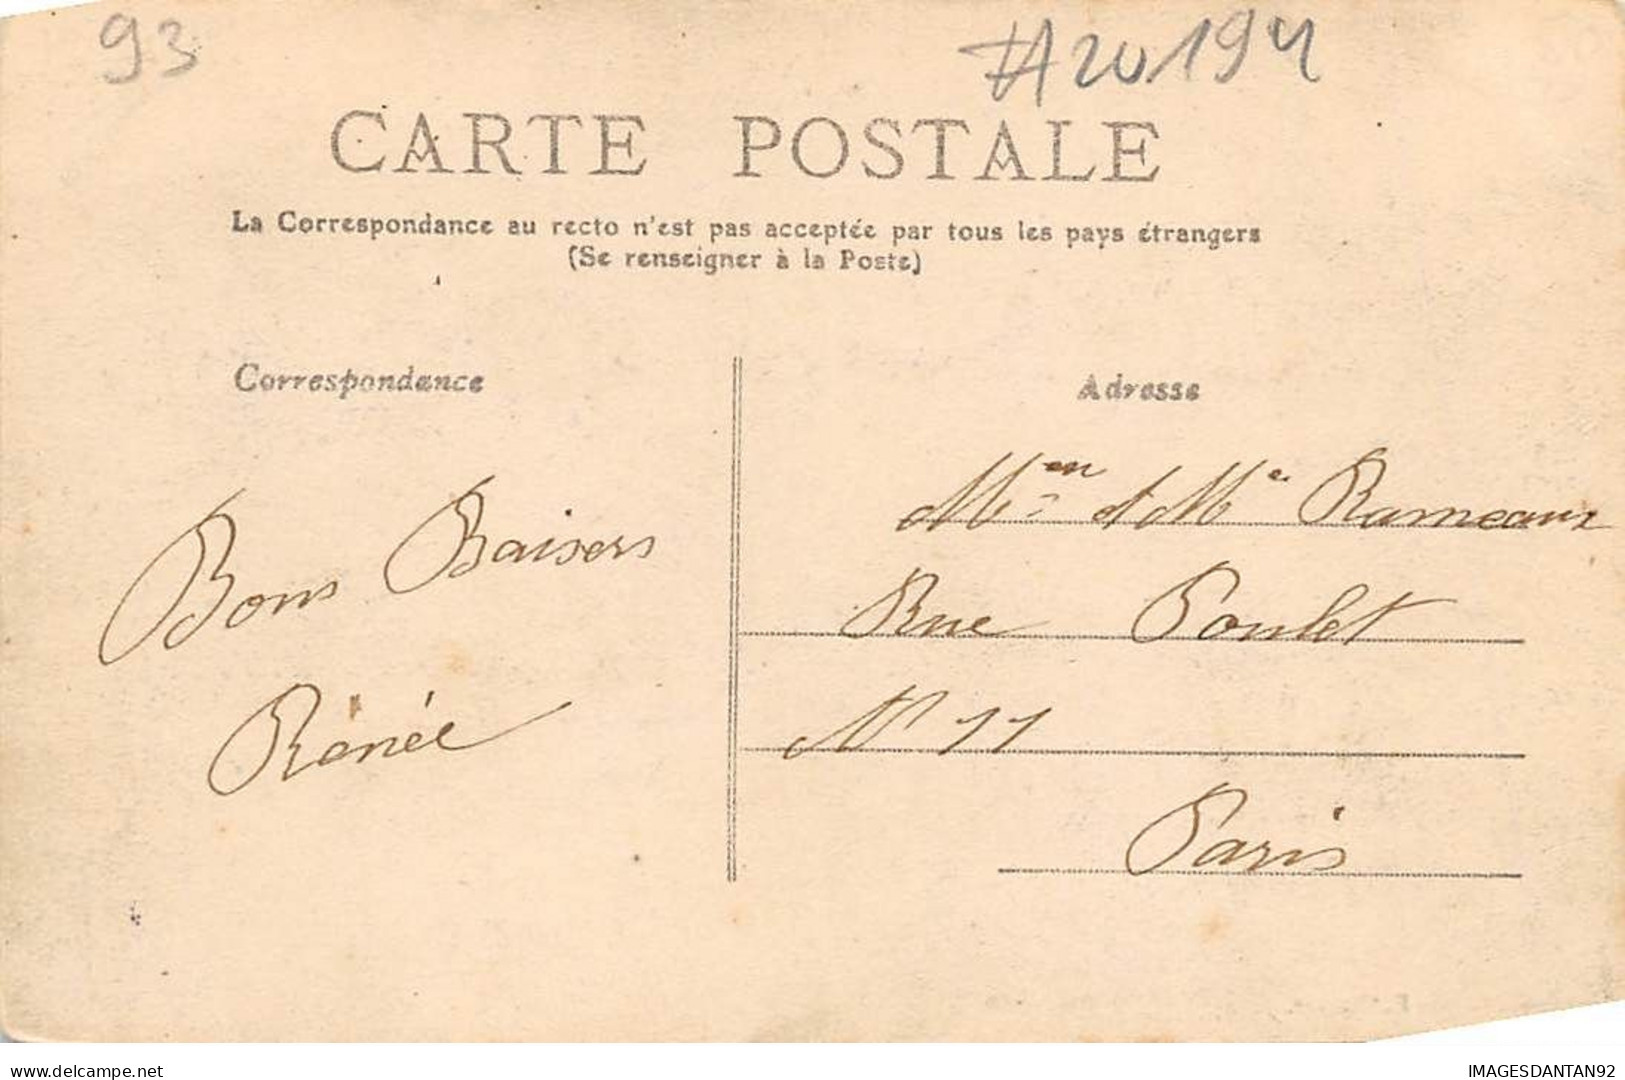 93
#A20194
CARTE POSTALE
La Correspondance au recto n'est pas acceptée par tous les pays étrangers
(Se renseigner à la Poste)
Correspondance
Adresse
Bons Baisers
Rénée
Mr et Me Rameaux
Rue Poulet
No 11
Paris
IMAGESDANTAN92
delcampe.net